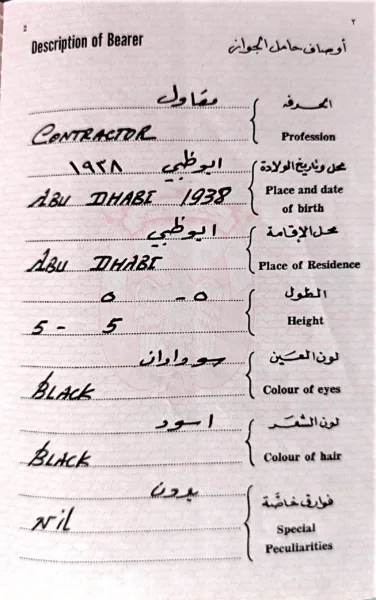 ٢
Description of Bearer
أوصاف حامل الجواز
مقاول
الحرفة
CONTRACTOR
Profession
ابوظبي ١٩٣٨
محل وتاريخ الولادة
ABU DHABE 1938
Place and date
of birth
ابوظبي
محل الإقامة
ABU DHABE
Place of Residence
٥ - ٥
الطول
5 - 5
Height
سوداوان
لون العين
BLACK
Colour of eyes
اسود
لون الشعر
BLACK
Colour of hair
بدون
فوارق خاصة
Nil
Special
Peculiarities